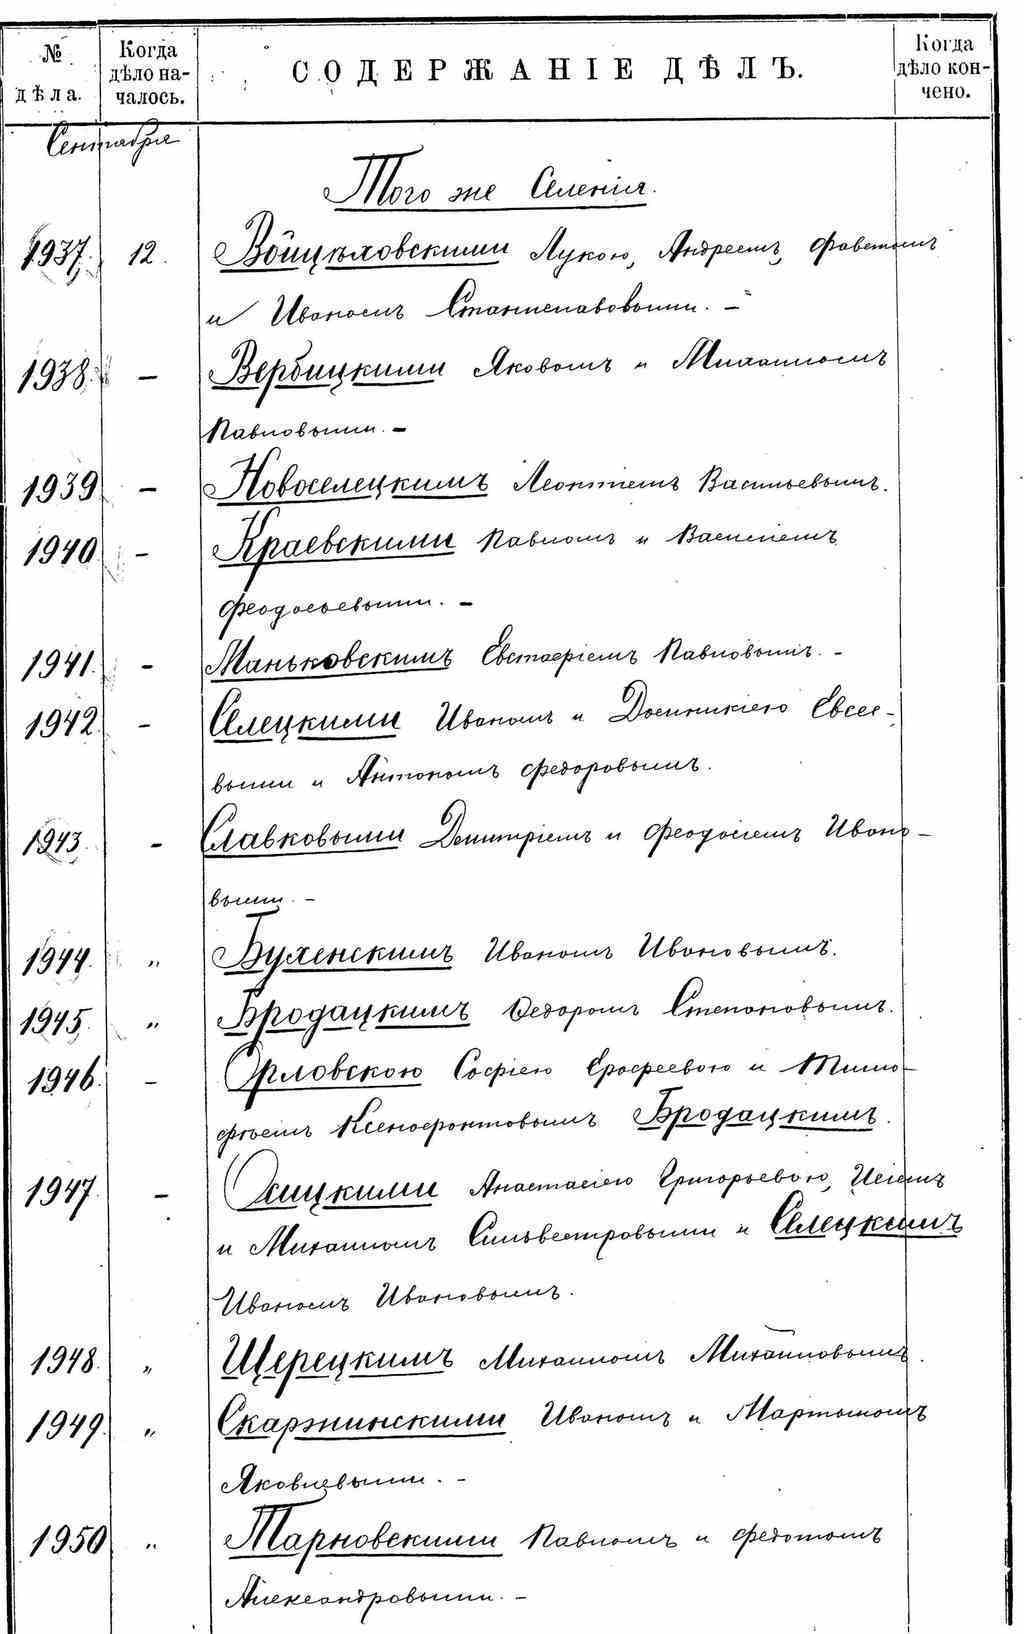 № дѣла.
Когда дѣло на-чалось.
СОДЕРЖАНІЕ ДѢЛЪ.
Когда дѣло кон-чено.
Сентября
Того же Селенія.
1937. 12. Войцѣховскими Лукою, Андреемъ, Фавстомъ
и Иваномъ Станиславовыми. -
1938. - Вербицкими Яковомъ и Михаиломъ
Павловыми. -
1939 - Новоселецкимъ Леонтіемъ Васильевымъ.
1940. - Краевскими Павломъ и Василіемъ
Феодосьевыми. -
1941. - Маньковскимъ Евстафіемъ Павловымъ. -
1942. - Селецкими Иваномъ и Доминикіею Евсее-
выми и Антономъ Федоровымъ.
1943. - Славковыми Дмитріемъ и Феодосіемъ Ивано-
выми. -
1944. „ Буженскимъ Иваномъ Ивановымъ.
1945. „ Бродацкимъ Ѳедоромъ Степановымъ.
1946. - Орловскою Софіею Ерофеевою и Тимо-
фѣемъ Ксенофонтовымъ Бродацкимъ.
1947. - Осицкими Анастасіею Григорьевою, Исіемъ
и Михаиломъ Сильвестровыми и Селецкимъ
Иваномъ Ивановымъ.
1948. „ Щерецкимъ Михаиломъ Михаиловымъ.
1949. „ Скаржинскими Иваномъ и Мартыномъ
Яковлевыми. -
1950 „ Тарновскими Павломъ и Федотомъ
Александровыми. -